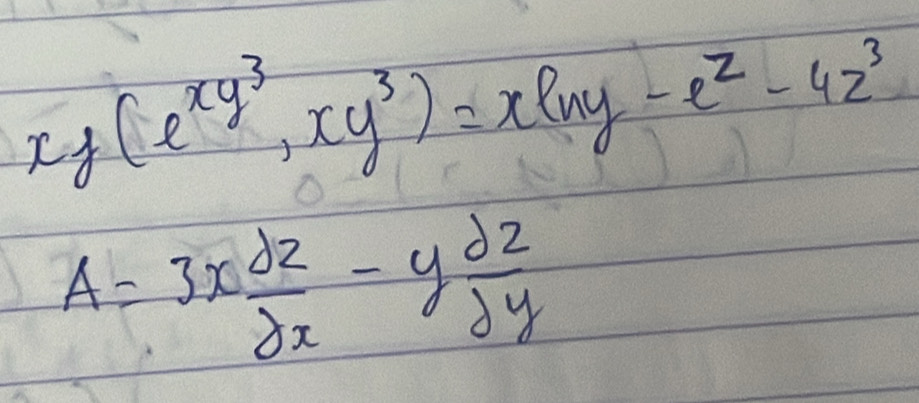 xf(e^{xy^3}, xy^3) = x ln y - e^z - 4z^3
A = 3x ∂z/∂x - y ∂z/∂y